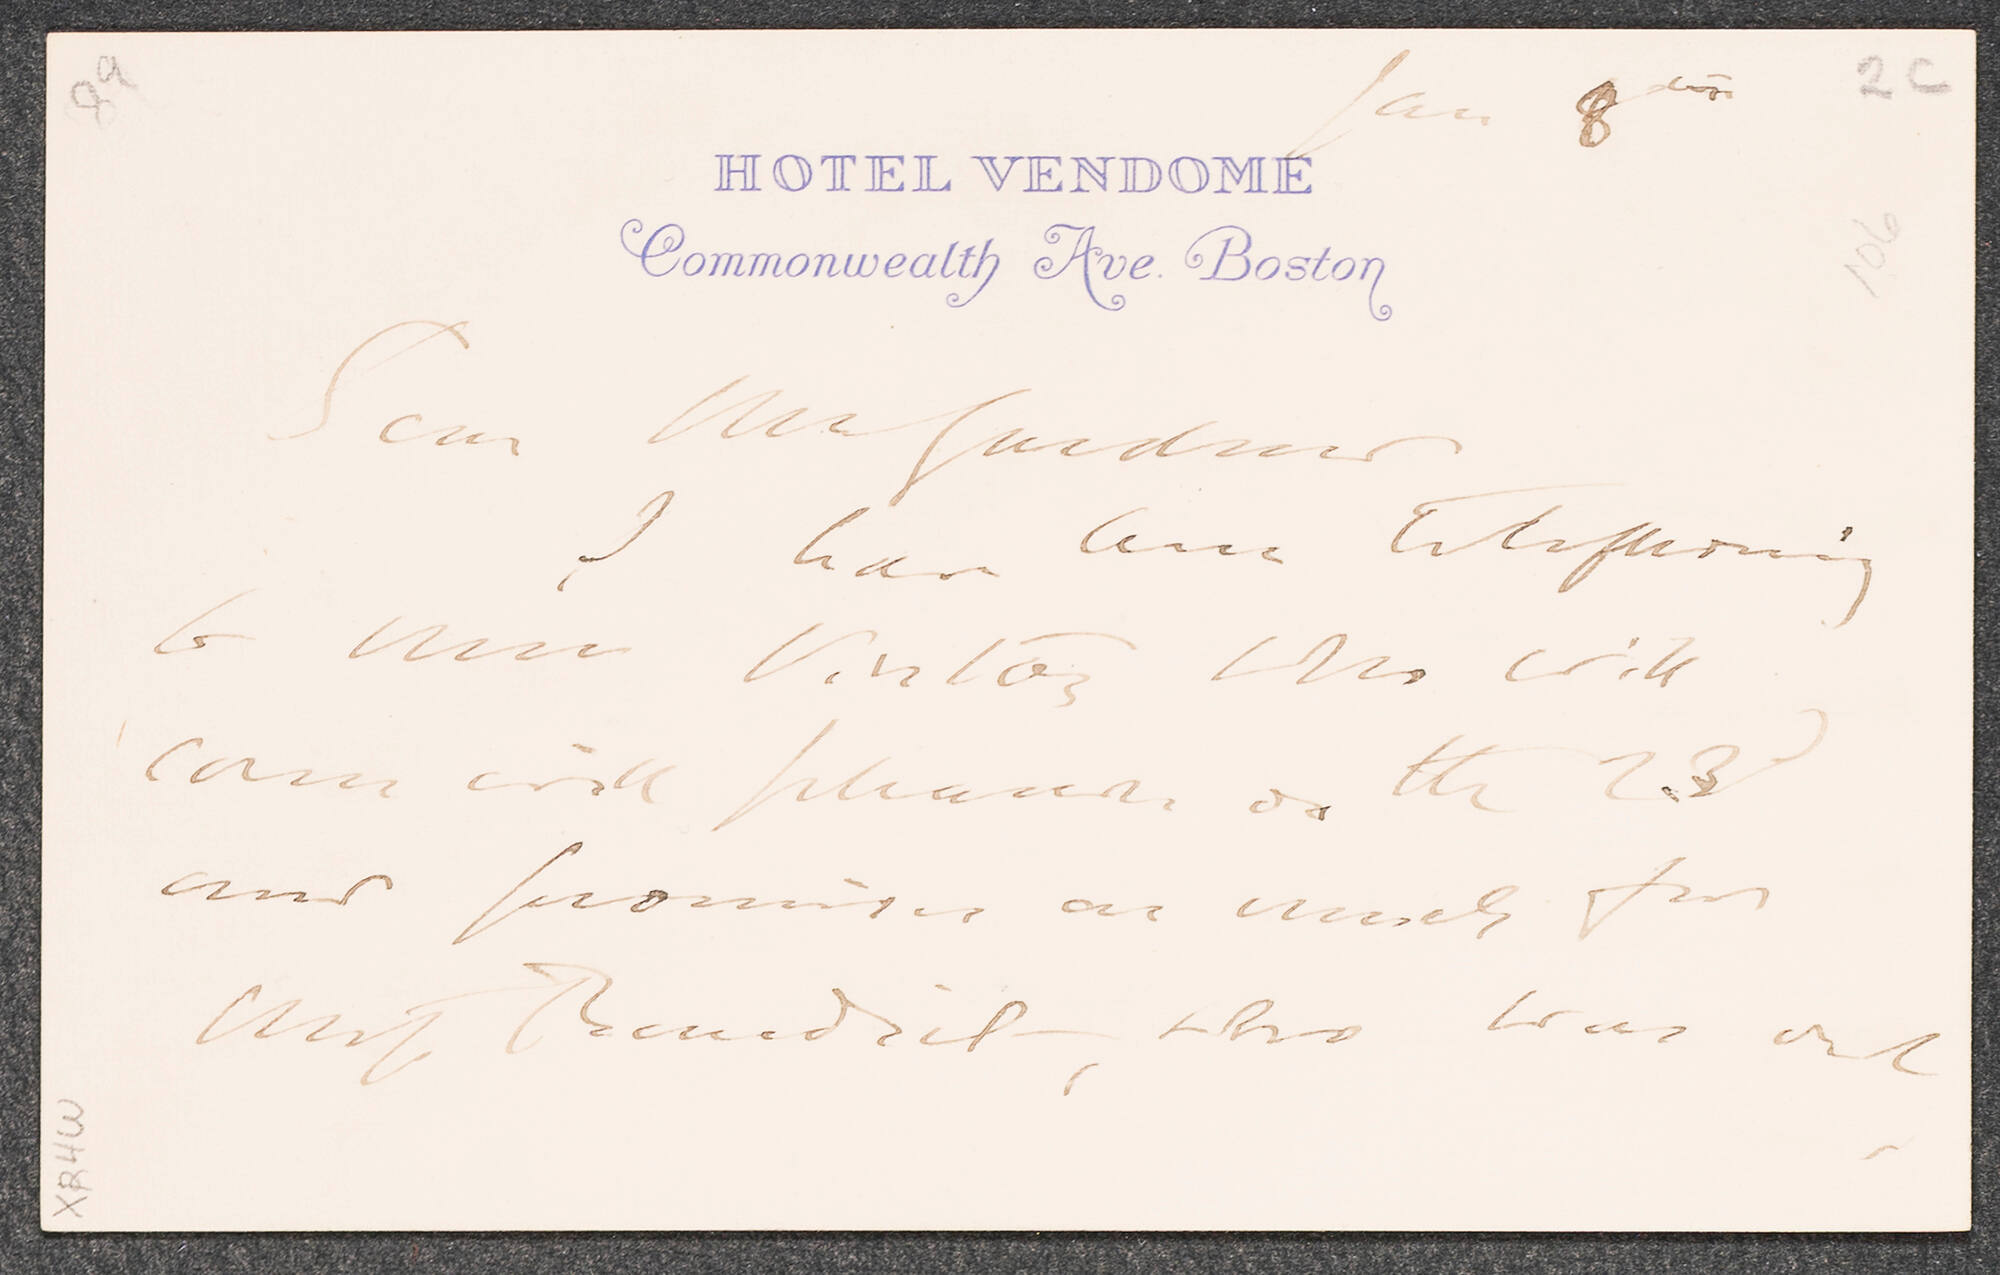 89
Jan 8th
2 C
HOTEL VENDOME
Commonwealth Ave. Boston
106
Dear Mrs Gardner
I have been telephoning
to Miss who will
come with pleasure on the 23d
and promises as much for
Benedict, who was out
XRHW